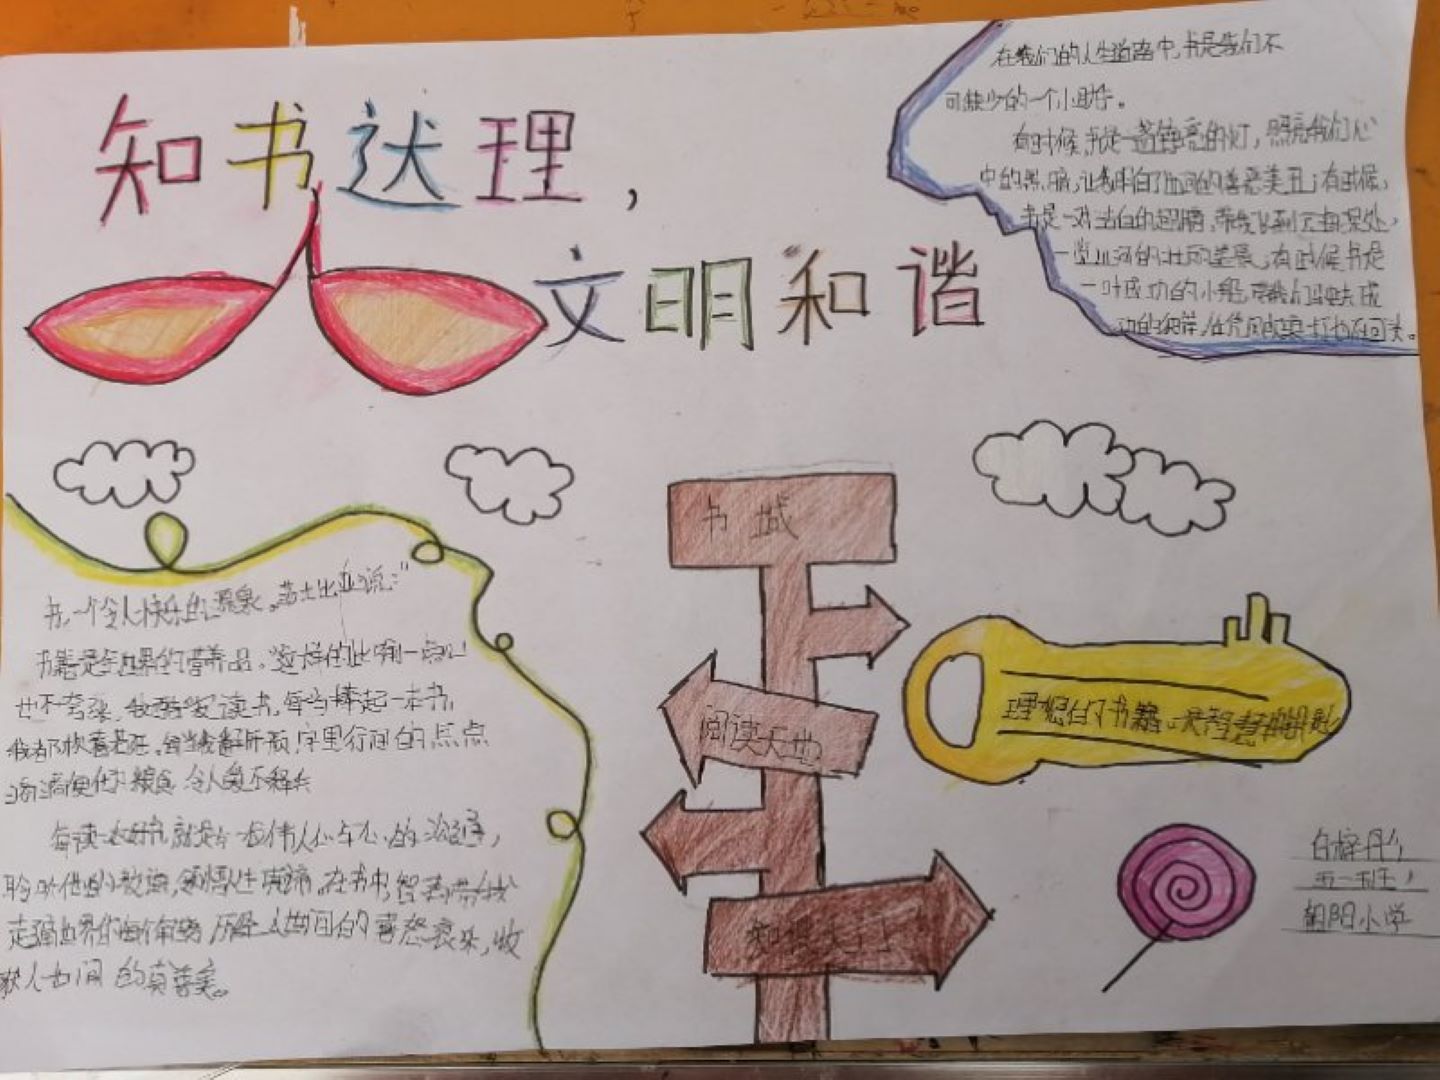 知书达理，
文明和谐
在我们的人生道路中，书是我们不
可缺少的一个小助手。
有时候，书是一盏明亮的灯，照亮我们心
中的黑暗，让我明白了世间的善恶美丑；有时候，
书是一对洁白的翅膀，带我飞到云端深处，
一览山河的壮丽美景；有时候书是
一叶成功的小船，带我们驶去成
书城
阅读天地
知识大门
理想的书籍，是智慧的钥匙
书，一个令人快乐的源泉。莎士比亚说：“
书籍是全世界的营养品。”这样的比喻一点儿
也不夸张，我酷爱读书，每当捧起一本书，
我都欣喜若狂，每当我翻开页，字里行间的点点
滴滴便化为粮食，令人爱不释手
每读一本好书，就是与一位伟人心与心的沟通，
聆听他的教诲，领悟人生真谛。在书中，智者带我
走遍世界的每个角落，历经人世间的喜怒哀乐，收
获人世间的真善美。
五一班
朝阳小学